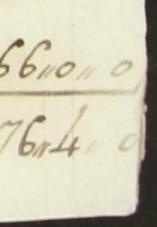 66 " 0 " 0
76 " 4 " 0